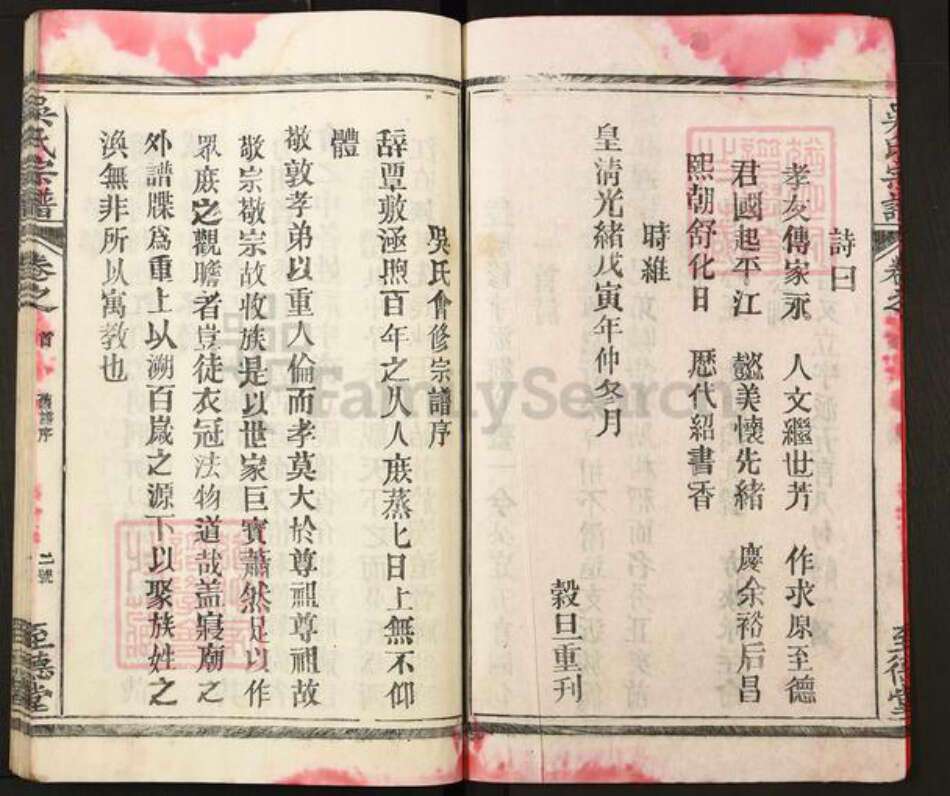 詩曰
孝友傳家永　人文繼世芳　作求原至德
君國起平江　懿美懷先緒　慶余裕后昌
熙朝舒化日　歷代紹書香
時維
皇清光緒戊寅年仲冬月
榖旦重刊
吳氏會修宗譜序
辭覃敷涵煦百年之久人庶蒸匕日上無不仰
體
敬敦孝弟以重人倫而孝莫大於尊祖尊祖故
敬宗敬宗故收族是以世家巨寳蕭然足以作
眾庶之觀瞻者豈徒衣冠法物道哉盖寢廟之
外譜牒爲重上以溯百嵗之源下以聚族姓之
渙無非所以寓教也
吳氏宗譜
卷之首
舊譜序
二號
至德堂
FamilySearch